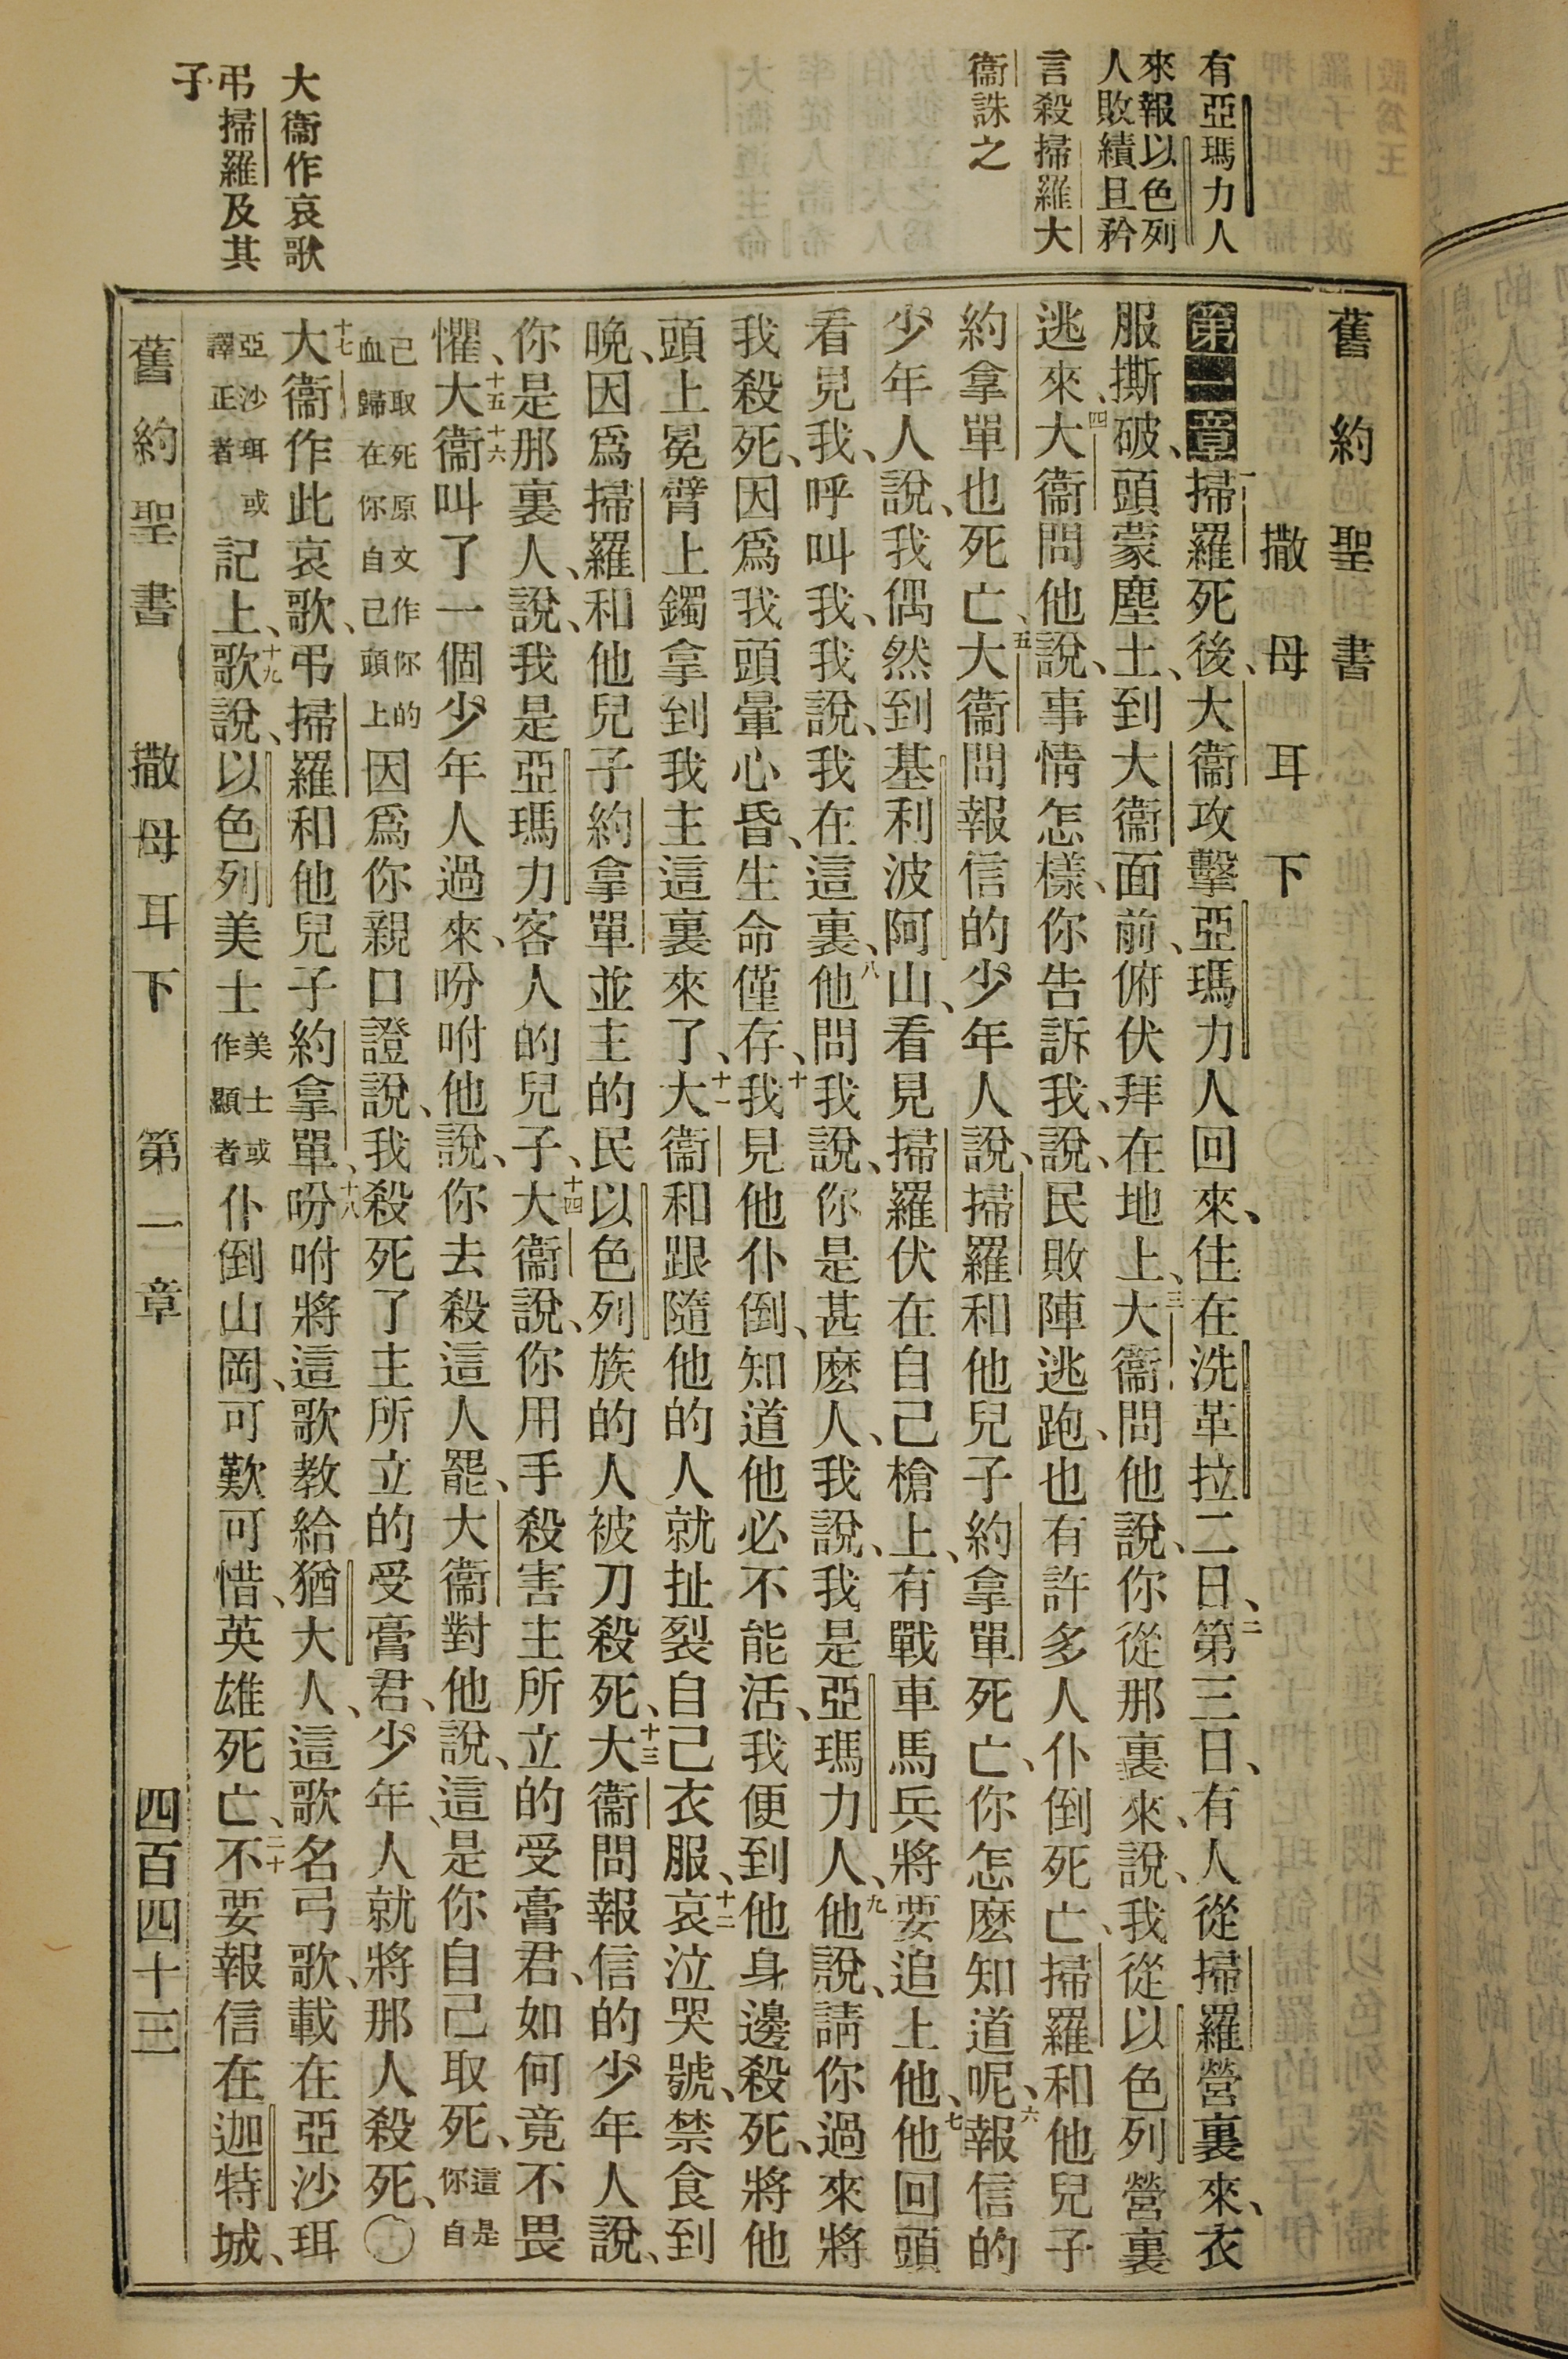 有亞瑪力人
來報以色列
人敗績且矜
言殺掃羅大
衞誅之
大衞作哀歌
弔掃羅及其
子
舊約聖書
撒母耳下
第一章一掃羅死後、大衞攻擊亞瑪力人回來、住在洗革拉二日、二第三日、有人從掃羅營裏來、衣
服撕破、頭蒙塵土、到大衞面前、俯伏拜在地上、三大衞問他說、你從那裏來、說、我從以色列營裏
逃來、四大衞問他說、事情怎樣、你告訴我、說、民敗陣逃跑、也有許多人仆倒死亡、掃羅和他兒子
約拿單也死亡、五大衞問報信的少年人說、掃羅和他兒子約拿單死亡、你怎麽知道呢、六報信的
少年人說、我偶然到基利波阿山、看見掃羅伏在自己槍上、有戰車馬兵將要追上他、七他回頭
看見我、呼叫我、我說、我在這裏、八他問我說、你是甚麽人、我說、我是亞瑪力人、九他說、請你過來將
我殺死、因爲我頭暈心昏、生命僅存、十我見他仆倒、知道他必不能活、我便到他身邊殺死、將他
頭上冕臂上鐲拿到我主這裏來了、十一大衞和跟隨他的人就扯裂自己衣服、十二哀泣哭號、禁食到
晩、因爲掃羅和他兒子約拿單並主的民以色列族的人被刀殺死、十三大衞問報信的少年人說、
你是那裏人、說、我是亞瑪力客人的兒子、十四大衞說、你用手殺害主所立的受膏君、如何竟不畏
懼、十五大衞十六叫了一個少年人過來、吩咐他說、你去殺這人罷、大衞對他說、這是你自己取死、這是你自
己取死原文作你的血歸在你自己頭上因爲你親口證說、我殺死了主所立的受膏君、少年人就將那人殺死、〇
十七大衞作此哀歌、弔掃羅和他兒子約拿單、十八吩咐將這歌教給猶大人、這歌名弓歌、載在亞沙珥
亞沙珥或譯正者記上、十九歌說、以色列美士美士或作顯者仆倒山岡、可歎可惜、英雄死亡、二十不要報信在迦特城、
舊約聖書 撒母耳下 第一章 四百四十三